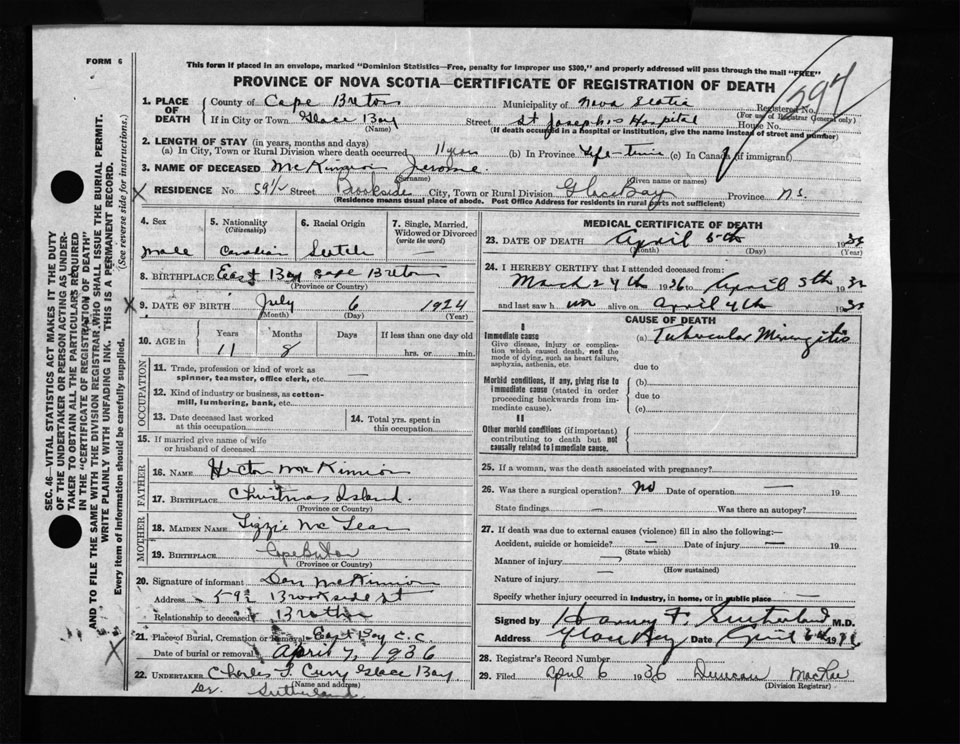 FORM 6
This form if placed in an envelope, marked "Dominion Statistics—Free, penalty for improper use $300," and properly addressed will pass through the mail "FREE"
PROVINCE OF NOVA SCOTIA—CERTIFICATE OF REGISTRATION OF DEATH
1. PLACE OF DEATH
County of Cape Breton Municipality of Nova Scotia Registered No.
(For use of Registrar General only)
If in City or Town Glace Bay Street St Josephs Hospital House No.
(Name) (If death occurred in a hospital or institution, give the name instead of street and number)
2. LENGTH OF STAY (in years, months and days)
(a) In City, Town or Rural Division where death occurred 11 years (b) In Province Life time (c) In Canada (if immigrant)
3. NAME OF DECEASED McKinnon Jerome.
(Surname) (Given name or names)
RESIDENCE No. Street Brookside City, Town or Rural Division Glace Bay Province N.S.
(Residence means usual place of abode. Post Office Address for residents in rural parts not sufficient)
4. Sex 5. Nationality (Citizenship) 6. Racial Origin 7. Single, Married, Widowed or Divorced (write the word)
male Canadian Scotch —
8. BIRTHPLACE East Bay Cape Breton
(Province or Country)
9. DATE OF BIRTH July 6 1924
(Month) (Day) (Year)
10. AGE in Years Months Days If less than one day old
11 8 hrs. or min.
OCCUPATION
11. Trade, profession or kind of work as spinner, teamster, office clerk, etc. —
12. Kind of industry or business, as cotton-mill, lumbering, bank, etc.
13. Date deceased last worked at this occupation
14. Total yrs. spent in this occupation
15. If married give name of wife or husband of deceased
FATHER
16. NAME Hector McKinnon
17. BIRTHPLACE Christmas Island.
(Province or Country)
MOTHER
18. MAIDEN NAME Lizzie McLean
19. BIRTHPLACE Cape Breton
(Province or Country)
20. Signature of informant Dan McKinnon
Address 592 Brookside St
Relationship to deceased Brother
21. Place of Burial, Cremation or Removal East Bay C.C.
Date of burial or removal April 7, 1936
22. UNDERTAKER Charles F. Curry Glace Bay
(Name and address)
Dr. Sutherland
MEDICAL CERTIFICATE OF DEATH
23. DATE OF DEATH April 5th 1936
(Month) (Day) (Year)
24. I HEREBY CERTIFY that I attended deceased from:
March 27th 1936 to April 5th 1936
and last saw him alive on April 4th 1936
CAUSE OF DEATH
I
Immediate cause
Give disease, injury or complication which caused death, not the mode of dying, such as heart failure, asphyxia, asthenia, etc.
(a) Tubercular Miningitis
due to
Morbid conditions, if any, giving rise to immediate cause (stated in order proceeding backwards from immediate cause).
(b)
due to
(c)
II
Other morbid conditions (if important) contributing to death but not causally related to immediate cause.
25. If a woman, was the death associated with pregnancy?
26. Was there a surgical operation? No Date of operation — 19
State findings — Was there an autopsy?
27. If death was due to external causes (violence) fill in also the following:—
Accident, suicide or homicide? — Date of injury — 19
(State which)
Manner of injury —
(How sustained)
Nature of injury —
Specify whether injury occurred in industry, in home, or in public place —
Signed by Harvey F. Sutherland M.D.
Address Glace Bay Date April 6th 1936
28. Registrar's Record Number
29. Filed April 6 1936 Duncan MacRae
(Division Registrar)
SEC. 46—VITAL STATISTICS ACT MAKES IT THE DUTY
OF THE UNDERTAKER OR PERSON ACTING AS UNDER-
TAKER TO OBTAIN ALL THE PARTICULARS REQUIRED
IN THE "CERTIFICATE OF REGISTRATION OF DEATH"
AND TO FILE THE SAME WITH THE DIVISION REGISTRAR, WHO SHALL ISSUE THE BURIAL PERMIT.
WRITE PLAINLY WITH UNFADING INK. THIS IS A PERMANENT RECORD.
Every item of information should be carefully supplied. (See reverse side for instructions.)